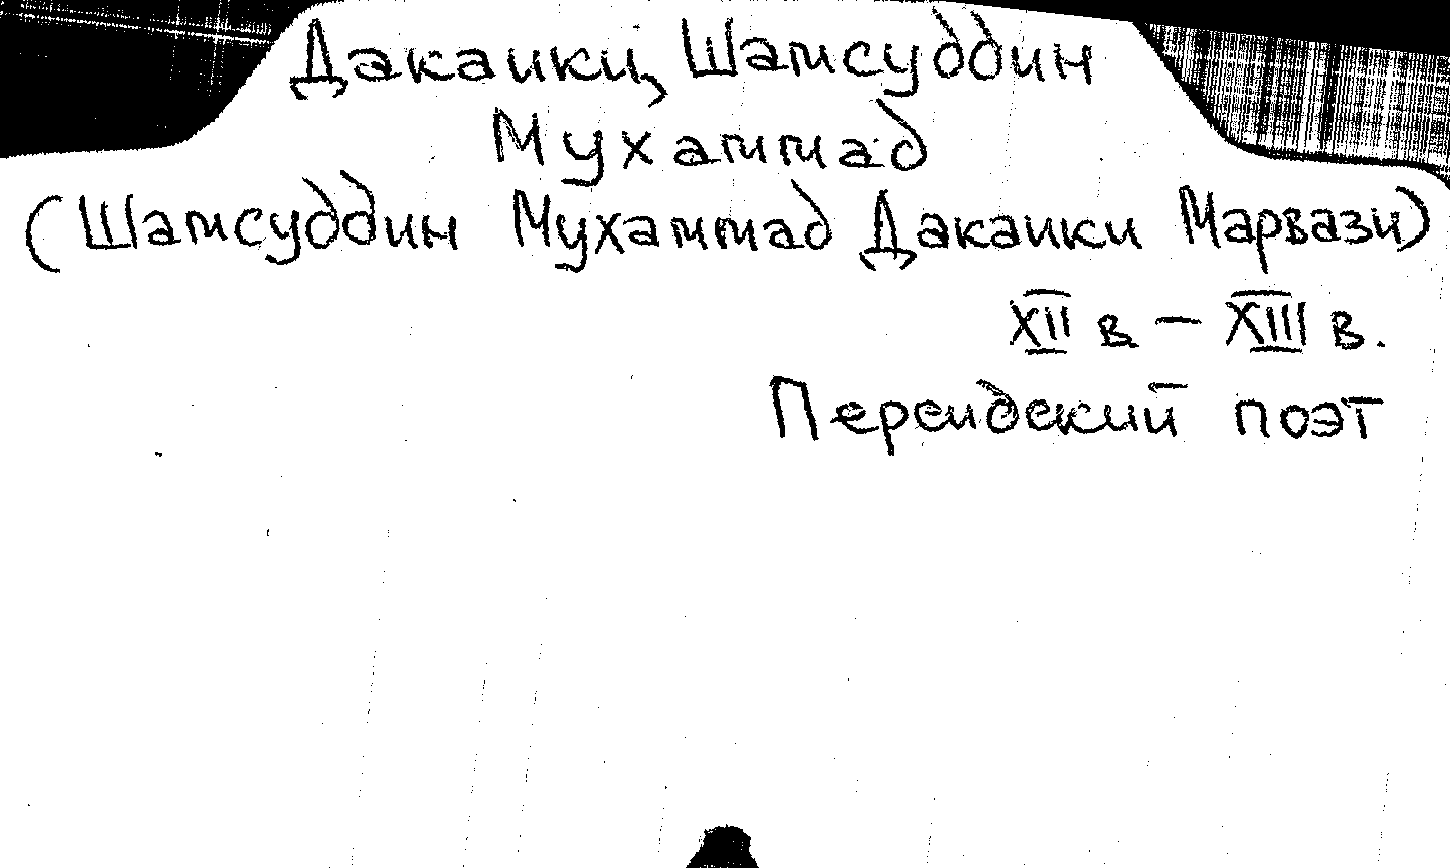 Дакаики, Шамсуддин
Мухаммад
(Шамсуддин Мухаммад Дакаики Марвази)
XII в – XIII в.
Персидский поэт